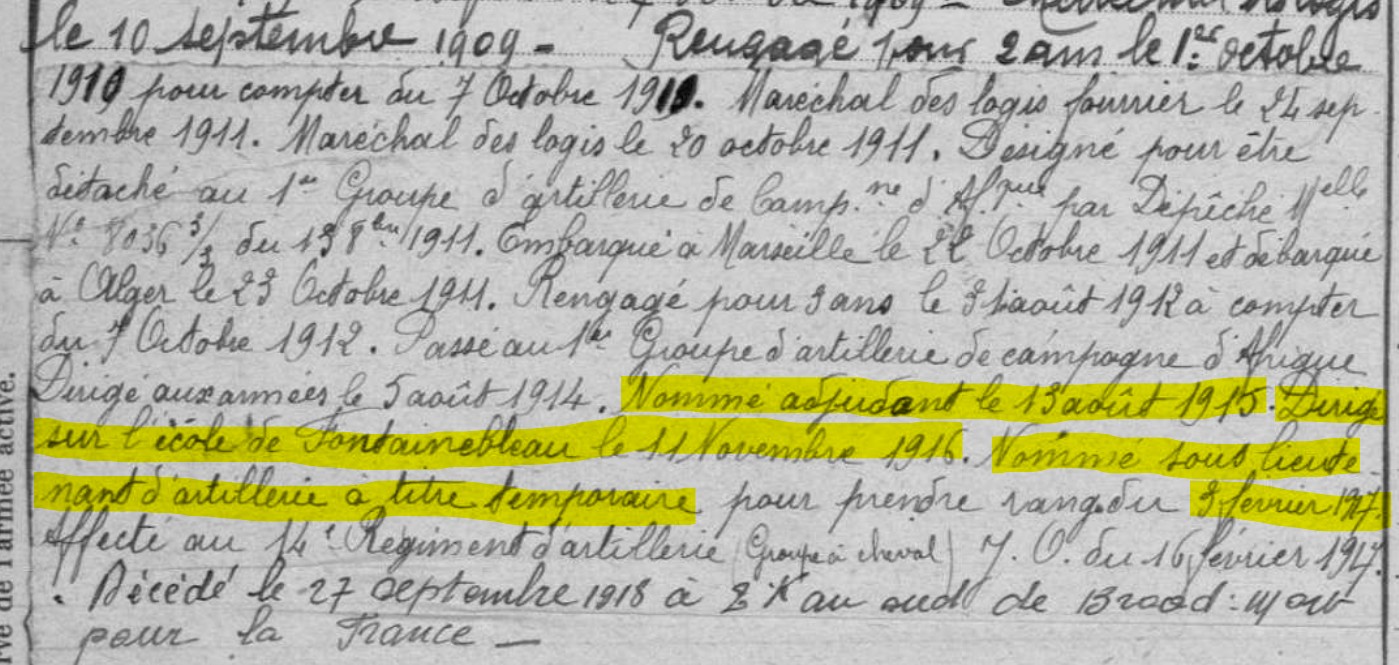 1909 - Maréchal des logis
le 10 septembre 1909 - Rengagé pour 2 ans le 1er octobre
1910 pour compter du 7 Octobre 1910. Maréchal des logis fourrier le 24 sep
tembre 1911. Maréchal des logis le 20 octobre 1911. Désigné pour être
détaché au 1er Groupe d'artillerie de Camp.ne d'Af.que par Dépêche Melle
N° 8036 3/3 du 13 8bre 1911. Embarqué à Marseille le 22 Octobre 1911 et débarqué
à Alger le 23 Octobre 1911. Rengagé pour 3 ans le août 1912 à compter
du 7 Octobre 1912. Passé au 1er Groupe d'artillerie de campagne d'Afrique
Dirigé aux armées le 5 août 1914. Nommé adjudant le 13 août 1915. Dirigé
sur l'école de Fontainebleau le 11 Novembre 1916. Nommé sous lieute
nant d'artillerie à titre temporaire pour prendre rang du 3 février 1917.
Affecté au 14e Régiment d'artillerie (Groupe à cheval) J. O. du 16 février 1917.
. Décédé le 27 septembre 1918 à 2 K au sud de Brood : mort
pour la France —
rve de l'armée active.